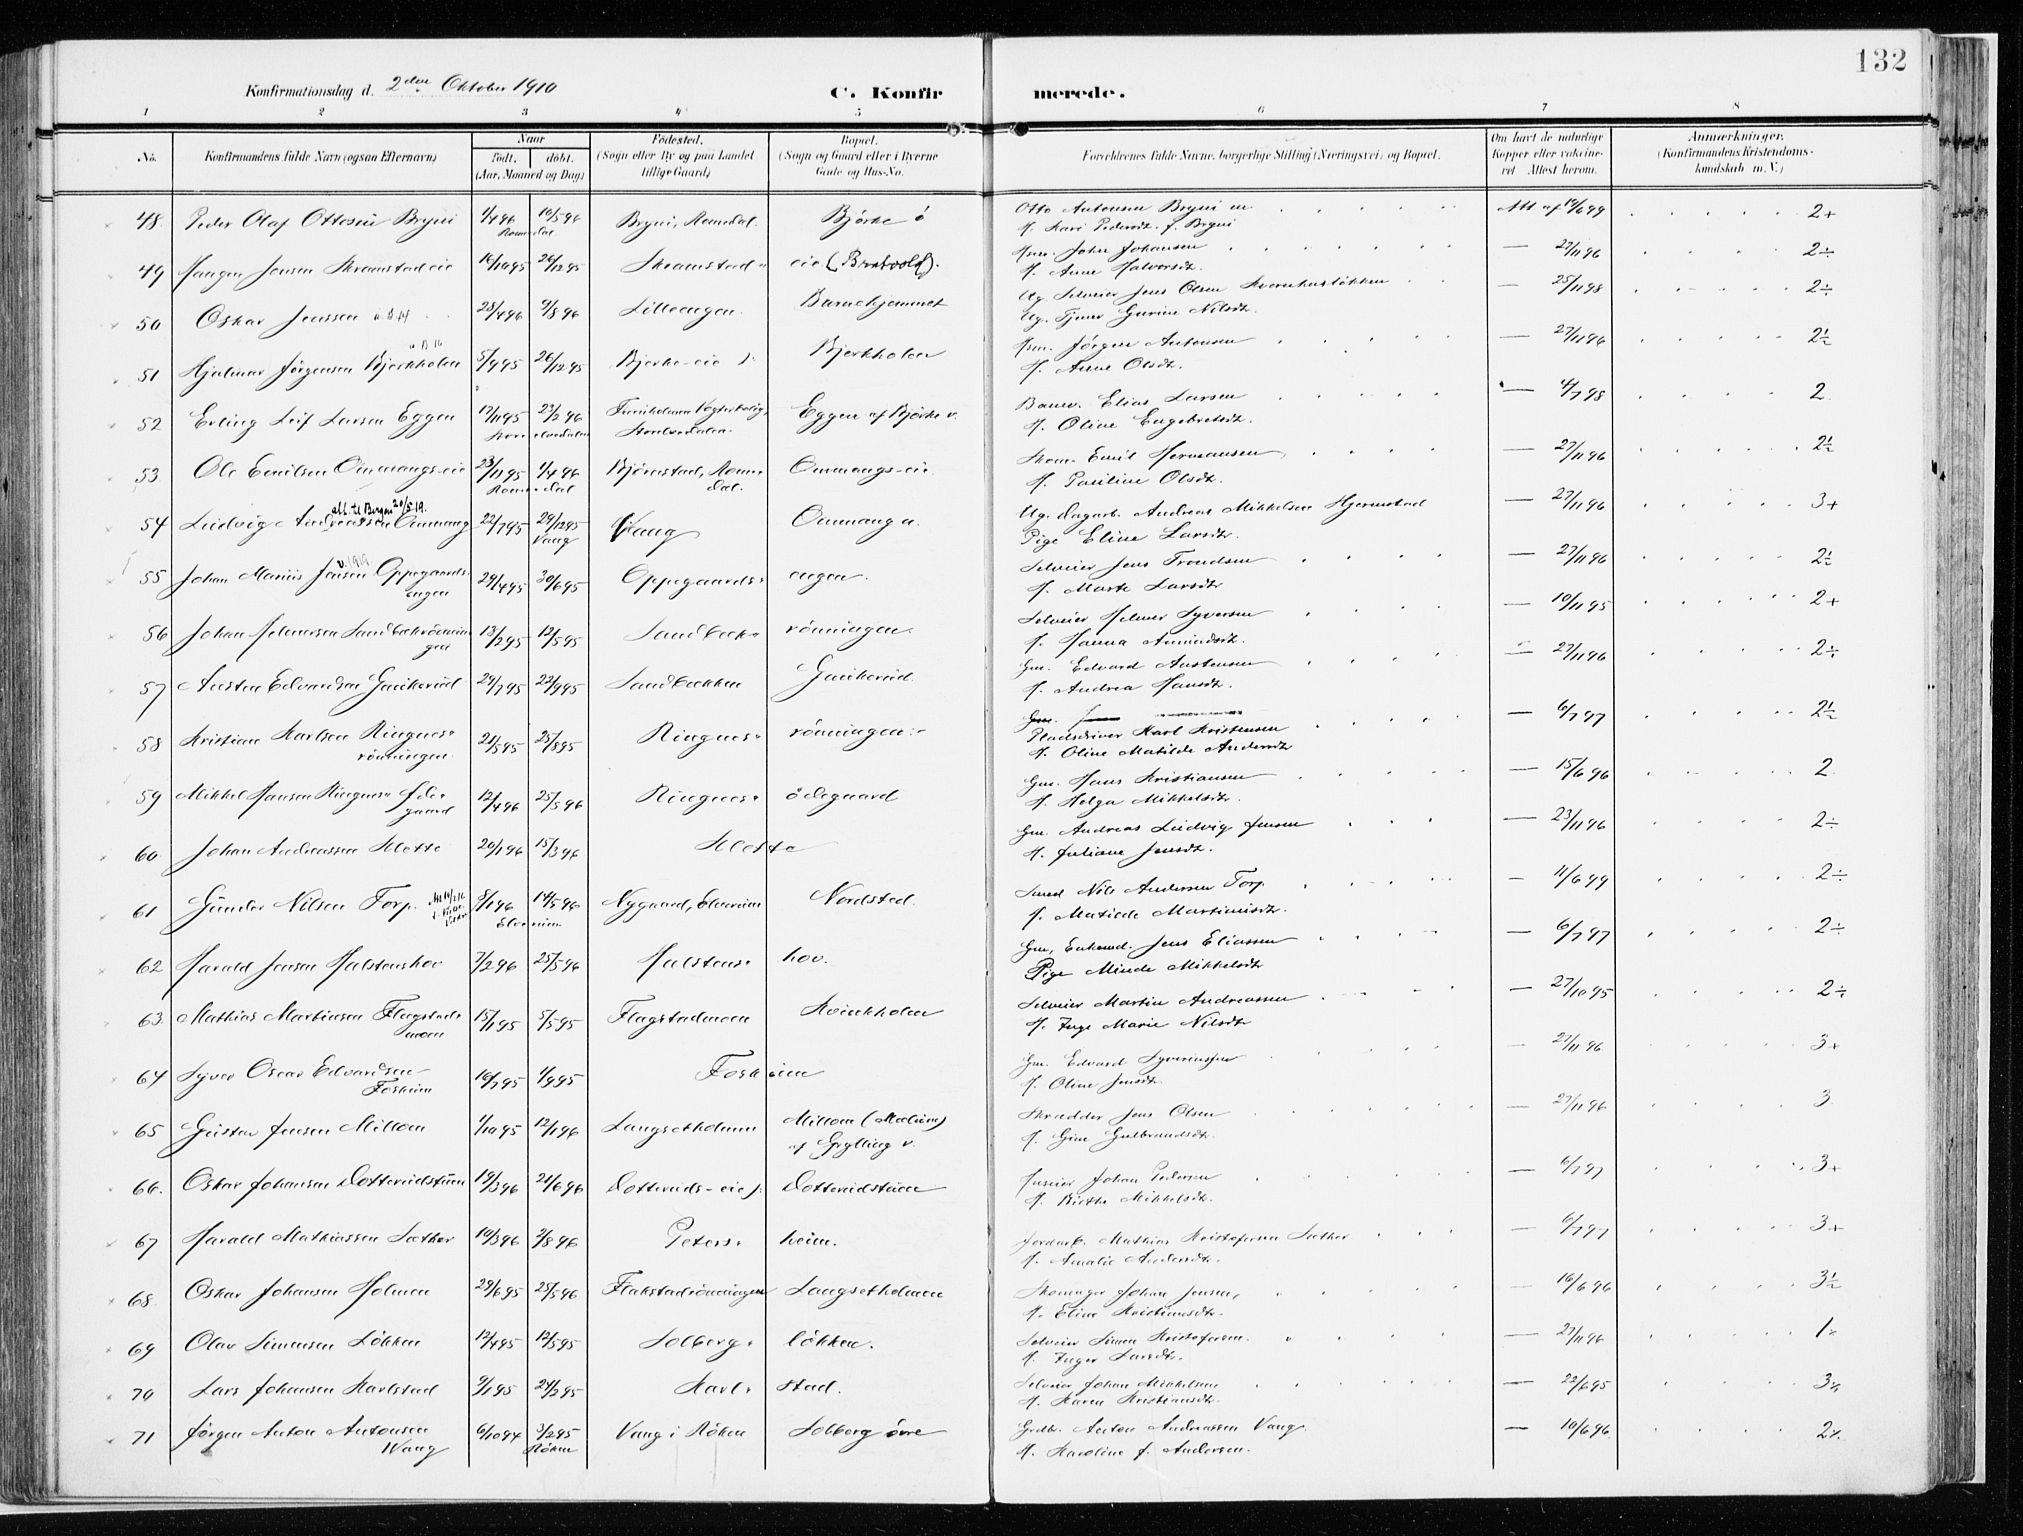 132
Konfirmationsdag d. 2den Oktober 1910 C. Konfirmerede.
1 2 3 4 5 6 7 8
No. Konfirmandens fulde Navn (ogsaa Efternavn) Naar født. døbt. (Aar, Maaned og Dag) Fødested. (Sogn eller By og paa Landet tillige Gaard) Bopæl. (Sogn og Gaard eller i Byerne Gade og Hus-No. Forældrenes fulde Navne, borgerlige Stilling (Næringsvei) og Bopæl. Om havt de naturlige Kopper eller vaccineret. Attest herom. Anmærkninger. (Konfirmandens Kristendomskundskab m. V.)
48. Peder Olaf Ottosen Bryni 1/4 96 10/5 96 Romedal Bryni, Romedal Bjørke ø Otto Antonsen Bryni m. H. Kari Pedersdt. f. Bryni Att af 19/6 99 2+
49 Jensen Skramstadeie 16/10 95 26/12 95 Skramstad- eie John Johansen H. Anne Halvorsdt. — 27/11 96 2÷
50 Oskar Jenssen 28/4 96 9/8 96 Lilleengen Barnehjemmet Ug. Selveier Jens Olsen Ug. Tjener Gurine Nilsdt. — 25/11 98 2÷
51 Hjalmar Jørgensen Bjerkholen 5/9 95 26/12 95 Bjerke-eie Bjerkholen Jørgen Antonsen H. Anne Olsdt. — 27/11 96 2½
52 Erling Leif Larsen Eggen 17/11 95 23/2 96 Storelvedalen Eggen af Bjørke v. Banev. Elias Larsen H. Oline Engebretsdt. — 4/7 98 2
53 Ole Emilsen Ommangs-eie 23/11 95 1/4 96 Romedal Bjørnstad, Romedal. Ommangs-eie Skom. Emil Hermansen H. Pauline Olsdt. — 27/11 96 2½
54 Ludvig Andreassen Ommang att. til Bergen 20/5 19. 22/7 95 29/12 95 Vang Vang Ommang n. Ug. Dagarb. Andreas Mikkelsen Hjermstad Pige Eline Larsdt. — 27/11 96 3+
55 Johan Marius Jensen Oppegaardsengen 29/4 95 30/6 95 Oppegaards- engen. Selveier Jens Trondsen H. Marte Larsdt. — 27/11 96 2½
56 Johan Helmersen Sandbækrønningen 13/2 95 12/5 95 Sandbæk- rønningen Selveier Helmer Syversen H. Hanna Amundsdt. — 10/11 95 2+
57 Austen Edvardsen Gaukerud 29/7 95 22/9 95 Sandbækken Gaukerud Gm. Edvard Austensen H. Andrea Hansdt. — 27/11 96 2÷
58 Kristian Karlsen Ringnesrønningen 21/5 95 25/8 95 Ringnes- rønningen Pladsdriver Karl Kristensen H. Oline Matilde Andersdt — 6/7 97 2½
59 Mikkel Hansen Ringnes Ødegaard 12/4 96 25/5 96 Ringnes- ødegaard Gm. Hans Kristiansen H. Helga Mikkelsdt. — 15/6 96 2
60 Johan Andreassen Klotte 20/1 96 15/3 96 Klotte Gm. Andreas Ludvig Jensen H. Juliane Jensdt. — 23/11 96 2÷
61 Gunder Nilsen Torp. 8/1 96 14/5 96 Elverum Nygaard, Elverum Nordstad. Smed Nils Andersen Torp H. Matilde Martinusdt. — 11/6 99 2÷
62 Harald Jensen Halstenshov 7/2 96 25/5 96 Halstens- hov. Gm, Enkemd. Jens Eliassen Pige Minda Mikkelsdt — 6/7 97 2÷
63 Mathias Martinsen Flagstadmoen 15/1 95 5/5 95 Flagstadmoen Kvinkholen Selveier Martin Andreassen H. Inge Marie Nilsdt — 27/10 95 2÷
64 Syver Oscar Edvardsen Fosheim 16/7 95 1/9 95 Fosheim Gm. Edvard H. Oline Jensdt. — 27/11 96 3+
65 Gustav Jensen Milloen 1/10 95 12/1 96 Langsetholmen Milloen af Grylling v. Skrædder Jens Olsen H. Gine Gulbrandsdt. — 27/11 96 3
66. Oskar Johansen Dotterudstuen 19/3 96 21/6 96 Dotteruds-eie Dotterudstuen Johan Pedersen H. Birthe Mikkelsdt. — 6/7 97 3+
67 Harald Mathiassen Sæther 10/3 96 9/8 96 Peters- heim. Jordarb. Mathias Kristofersen Sæther H. Amalie Andersdt. — 6/7 97 3+
68. Oskar Johansen Holmen 29/6 95 25/5 96 Flakstadrønningen Langsetholmen Skomager Johan Jensen, H. Eline Kristiansdt. — 16/6 96 3½
69 Olav Simensen Løkken 12/4 95 12/5 95 Solberg- løkken. Selveier Simen Kristofersen. H. Inger Larsdt. — 27/11 96 1
70 Lars Johansen Karlstad 9/1 95 24/2 95 Karl- stad. Selveier Johan Mikkelsen H. Karen Kristiansdt. — 22/6 95 3
71 Jørgen Anton Antonsen Wang 6/10 94 3/2 95 Røken Vang i Røken Solberg øvre Grdbr. Anton Andreassen Vang. H. Karoline f. Andersen. — 10/6 96. 2